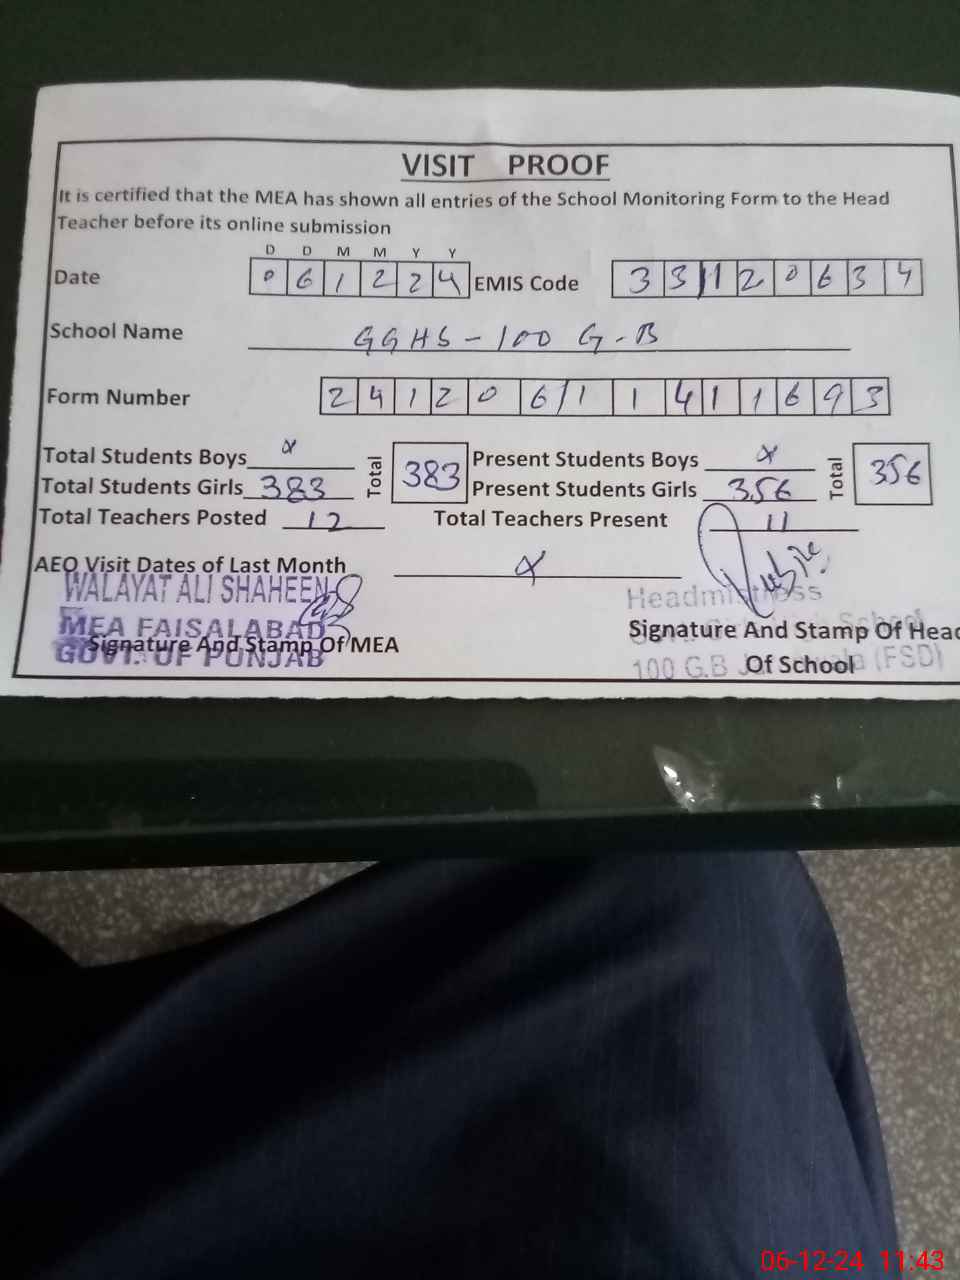 VISIT PROOF
It is certified that the MEA has shown all entries of the School Monitoring Form to the Head
Teacher before its online submission
D D M M Y Y
Date 0 6 1 2 2 4 EMIS Code 3 3 1 2 0 6 3 4
School Name GGHS - 100 G-B
Form Number 2 4 1 2 0 6 1 1 4 1 1 6 9 3
Total Students Boys x Total 383 Present Students Boys x Total 356
Total Students Girls 383 Present Students Girls 356
Total Teachers Posted 12 Total Teachers Present 11
AEO Visit Dates of Last Month x
WALAYAT ALI SHAHEEN
MEA FAISALABAD
GOVT. OF PUNJAB
Signature And Stamp Of MEA
Headmistress
School
100 G.B (FSD)
Signature And Stamp Of Head
Of School
06-12-24 11:43